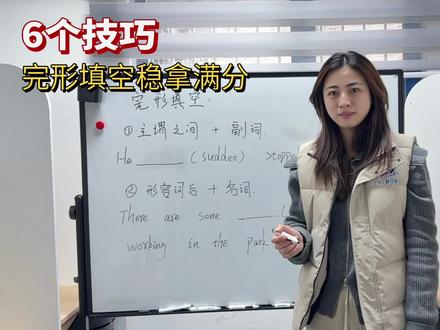 6个技巧
完形填空稳拿满分
完形填空:
①主谓之间 + 副词.
He ______ (sudden) stopp
② 形容词后 + 名词.
There are some ______ (
working in the park